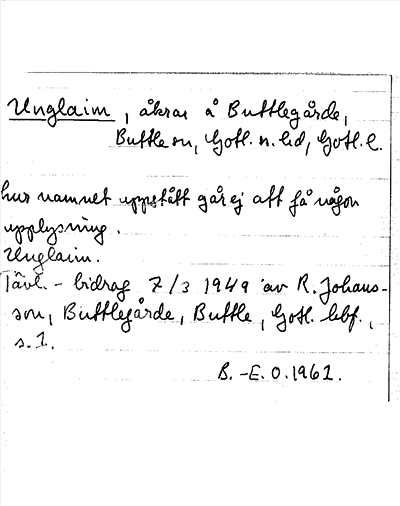 Unglaim, åkrar å Buttlegårde,
Buttle sn, Gotl. n. hd, Gotl. l.
hur namnet uppstått går ej att få någon
upplysning.
Unglaim.
Tävl.-bidrag 7/3 1949 av R. Johans-
son, Buttlegårde, Buttle, Gotl. hbf.,
s. 1.
B.-E. O. 1961.